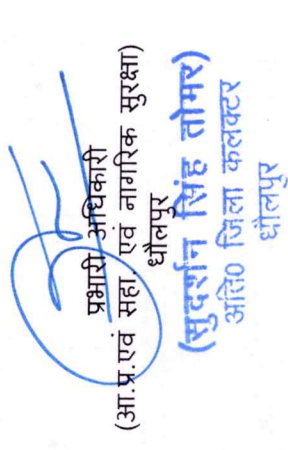 प्रभारी अधिकारी
(आ.प्र.एवं सहा. एवं नागरिक सुरक्षा)
धौलपुर
(सुदर्शन सिंह तोमर)
अति० जिला कलक्टर
धौलपुर